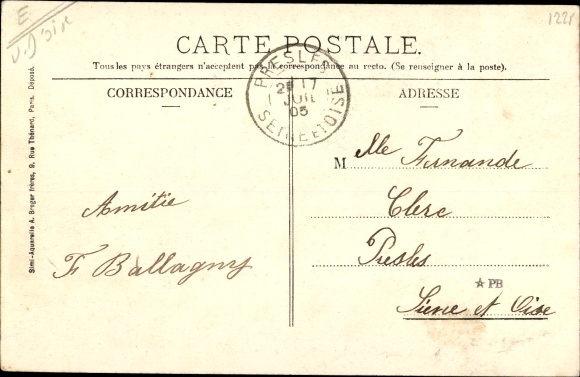 E
V. D'Oise
1221
CARTE POSTALE.
Tous les pays étrangers n'acceptent pas la correspondance au recto. (Se renseigner à la poste).
PRESLES
2E 17
1 JUIL
05
SEINE ET OISE
CORRESPONDANCE
ADRESSE
Simi-Aquarelle A. Breger frères, 9, Rue Thénard, Paris. Déposé.
Amitie
F Ballagny
Melle Fernande
Clerc
Presles
PB
Siene et Oise